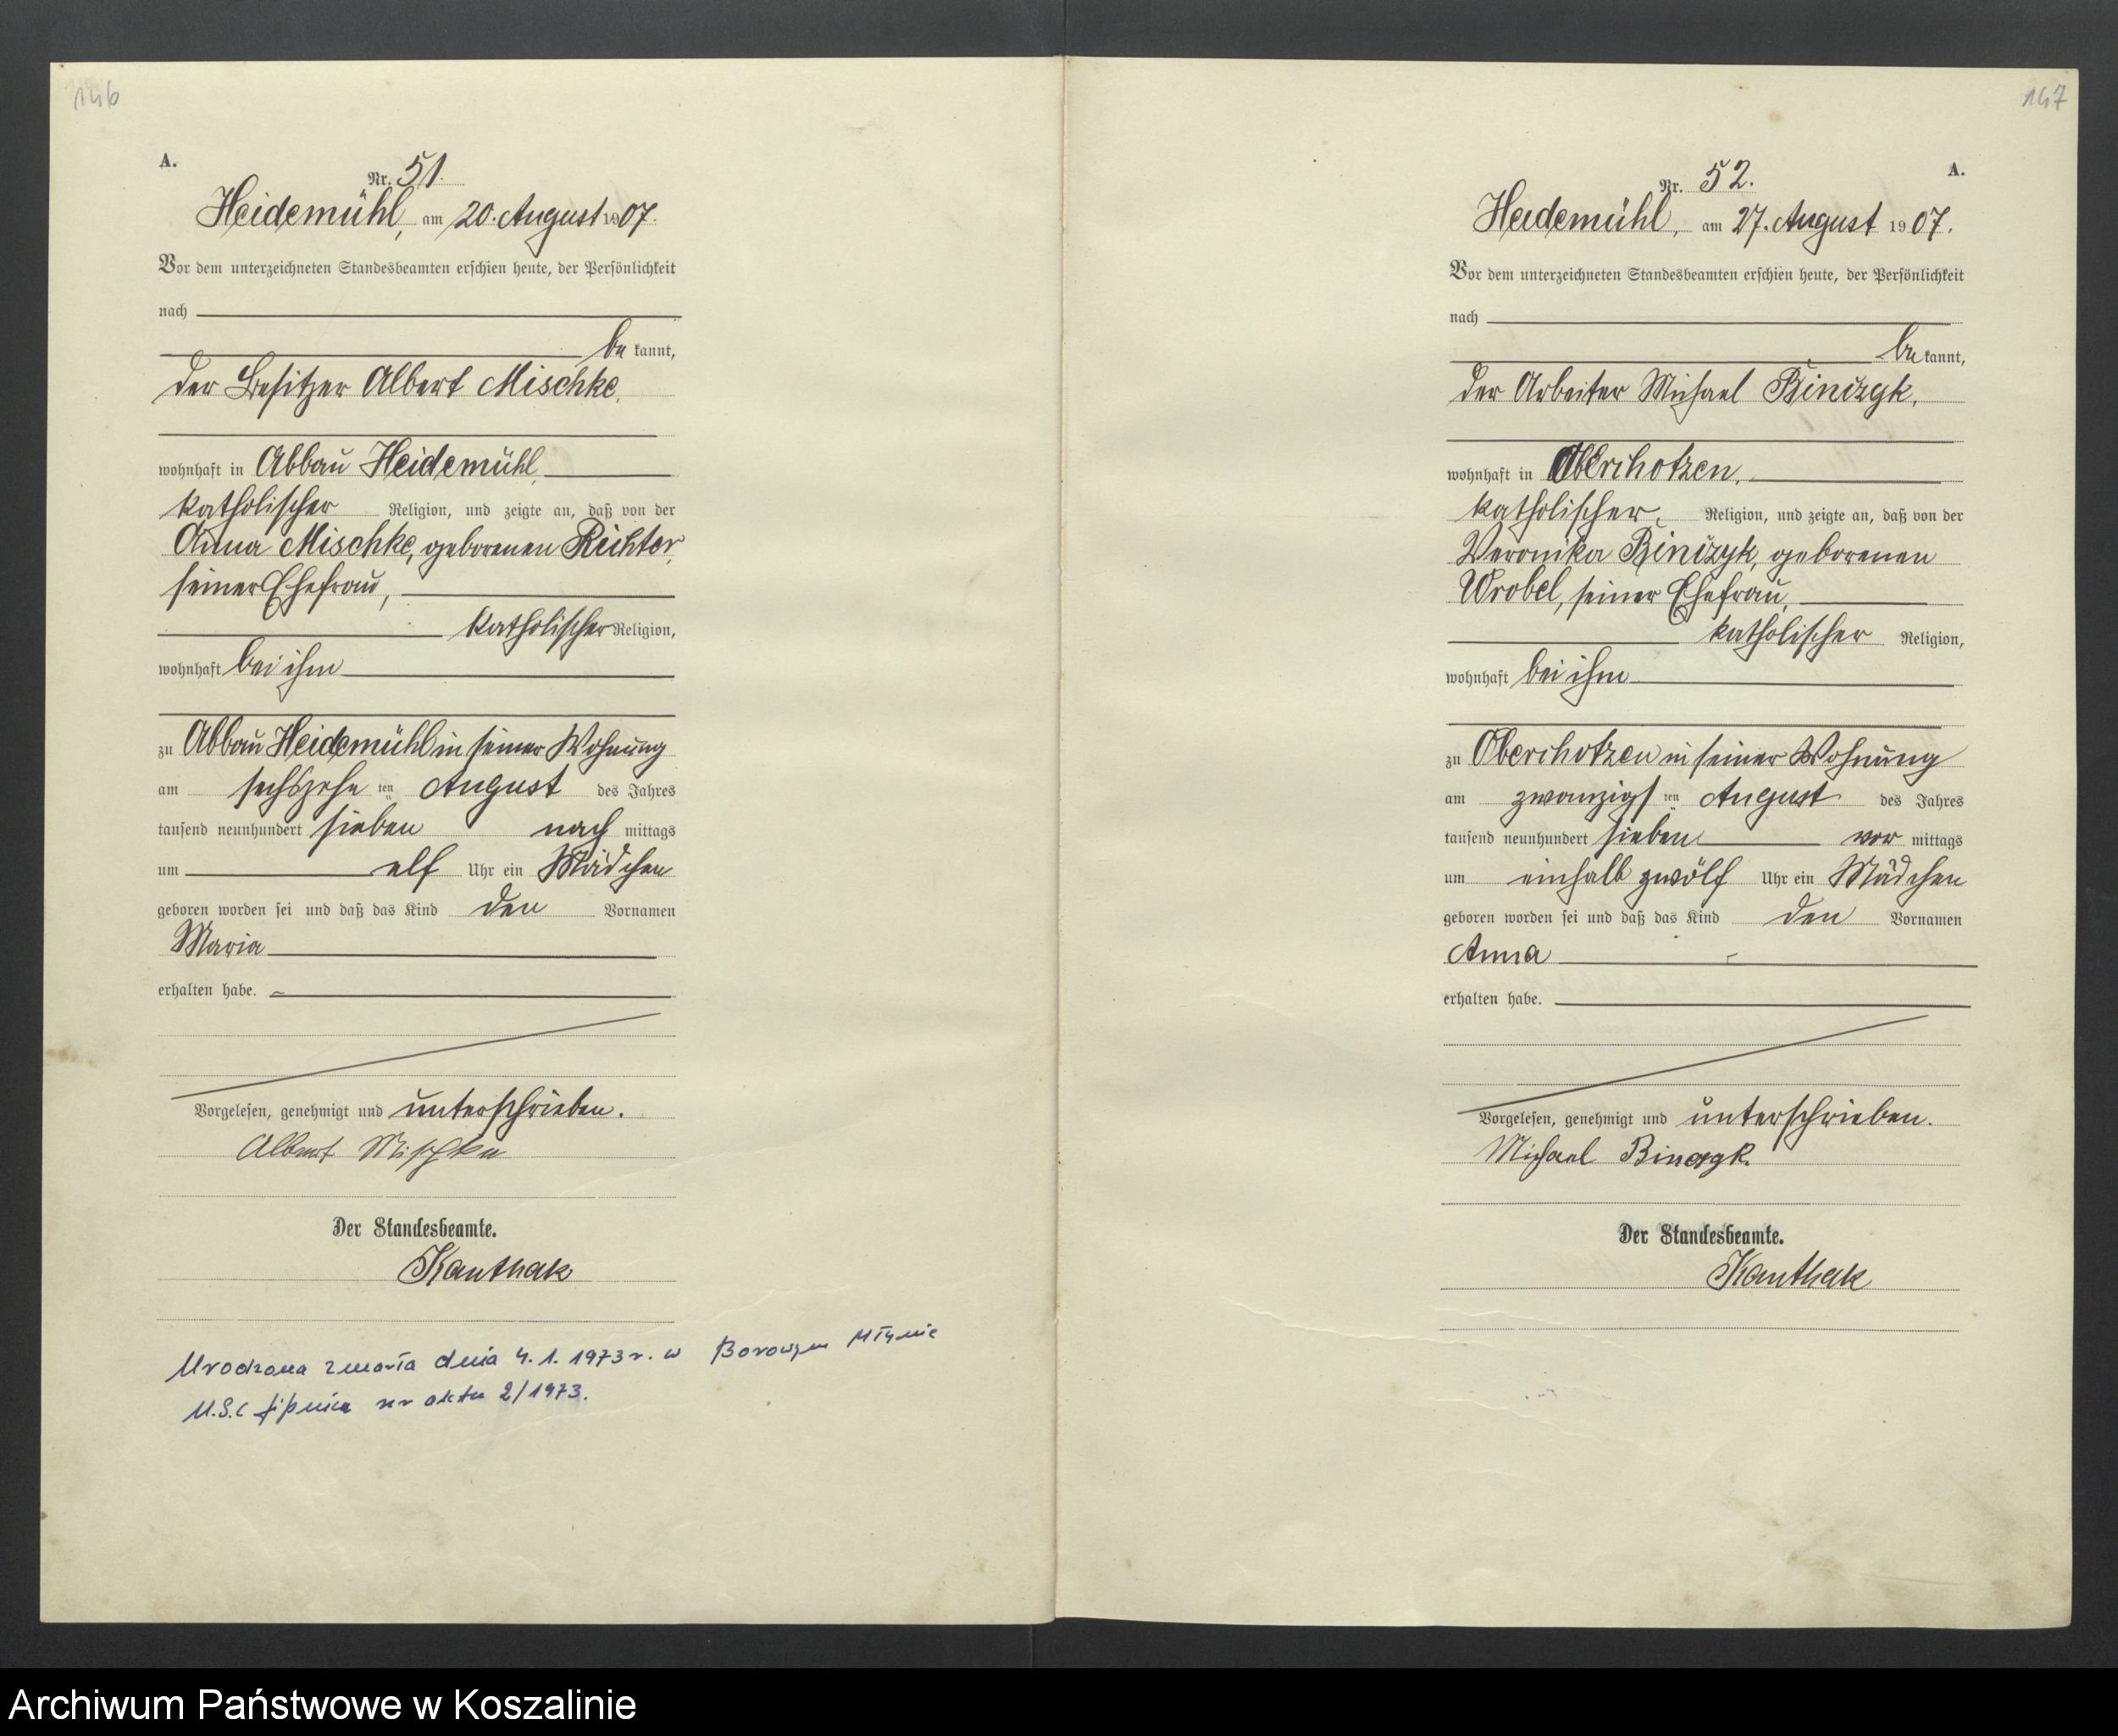 146
A.
Nr. 51.
Heidemühl, am 20. August 1907.
Vor dem unterzeichneten Standesbeamten erschien heute, der Persönlichkeit
nach
be kannt,
der Besitzer Albert Mischke,
wohnhaft in Abbau Heidemühl,
katholischer Religion, und zeigte an, daß von der
Anna Mischke, geborenen Richter,
seiner Ehefrau,
katholischer Religion,
wohnhaft bei ihm
zu Abbau Heidemühl in seiner Wohnung
am sechszehn ten August des Jahres
tausend neunhundert sieben nach mittags
um elf Uhr ein Mädchen
geboren worden sei und daß das Kind den Vornamen
Maria
erhalten habe.
Vorgelesen, genehmigt und unterschrieben.
Albert Mischke
Der Standesbeamte.
Kanthak
Urodzona zmarła dnia 4.1.1973 r. w Borowym Młynie
U.S.C Lipnica nr aktu 2/1973.
147
A.
Nr. 52.
Heidemühl, am 27. August 1907.
Vor dem unterzeichneten Standesbeamten erschien heute, der Persönlichkeit
nach
be kannt,
der Arbeiter Michael Binczyk,
wohnhaft in Oberchotzen,
katholischer Religion, und zeigte an, daß von der
Veronika Binczyk, geborenen
Wrobel, seiner Ehefrau,
katholischer Religion,
wohnhaft bei ihm
zu Oberchotzen in seiner Wohnung
am zwanzigs ten August des Jahres
tausend neunhundert sieben vor mittags
um einhalb zwölf Uhr ein Mädchen
geboren worden sei und daß das Kind den Vornamen
Anna
erhalten habe.
Vorgelesen, genehmigt und unterschrieben.
Michael Binczyk
Der Standesbeamte.
Kanthak
Archiwum Państwowe w Koszalinie